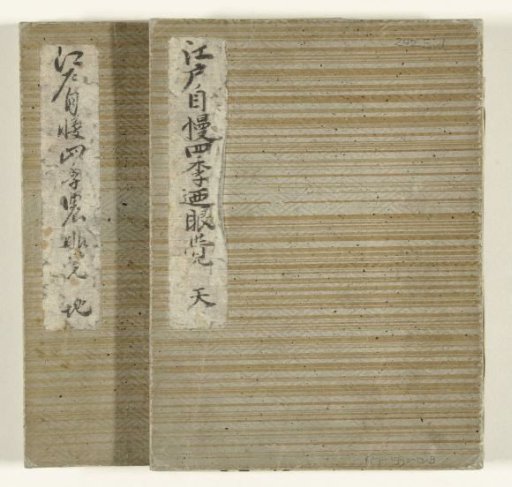 江戸自慢四季廼眼覚 天
江戸自慢四季農眼覚 地